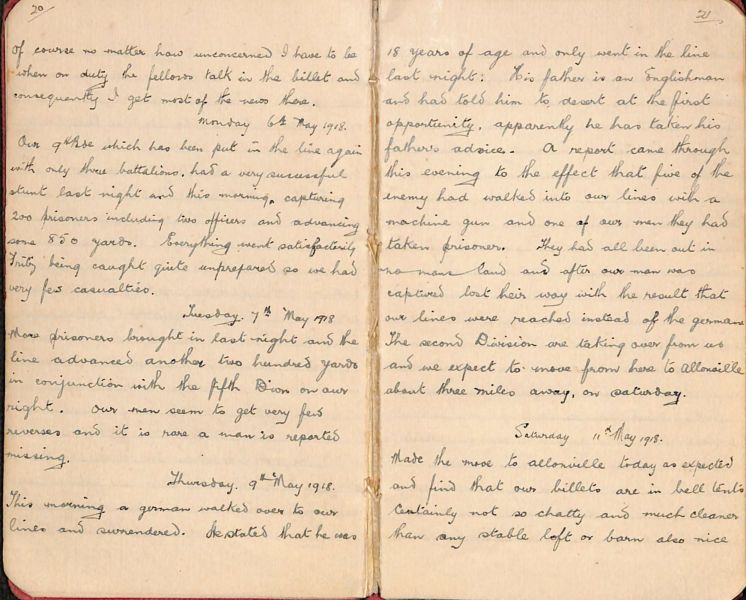 20
of course no matter how unconcerned I have to be
when on duty the fellows talk in the billet and
consequently I get most of the news there.
Monday 6th May 1918.
Our 9th Bde which has been put in the line again
with only three battalions, had a very successful
stunt last night and this morning, capturing
200 prisoners including two officers and advancing
some 850 yards. Everything went satisfactorily
Fritz being caught quite unprepared so we had
very few casualties.
Tuesday. 7th May 1918
More prisoners brought in last night and the
line advanced another two hundred yards
in conjunction with the fifth Divn on our
right. Our men seem to get very few
reverses and it is rare a man is reported
missing.
Thursday. 9th May 1918.
This morning a german walked over to our
lines and surrendered. He stated that he was
21
18 years of age and only went in the line
last night. His father is an Englishman
and had told him to desert at the first
opportunity, apparently he has taken his
father's advice. A report came through
this evening to the effect that five of the
enemy had walked into our lines with a
machine gun and one of our men they had
taken prisoner. They had all been out in
no mans land and after our man was
captured lost their way with the result that
our lines were reached instead of the germans
The second Division are taking over from us
and we expect to move from here to Allonville
about three miles away, on saturday.
Saturday 11th May 1918.
Made the move to allonville today as expected
and find that our billets are in bell tents
Certainly not so chatty and much cleaner
than any stable loft or barn also nice